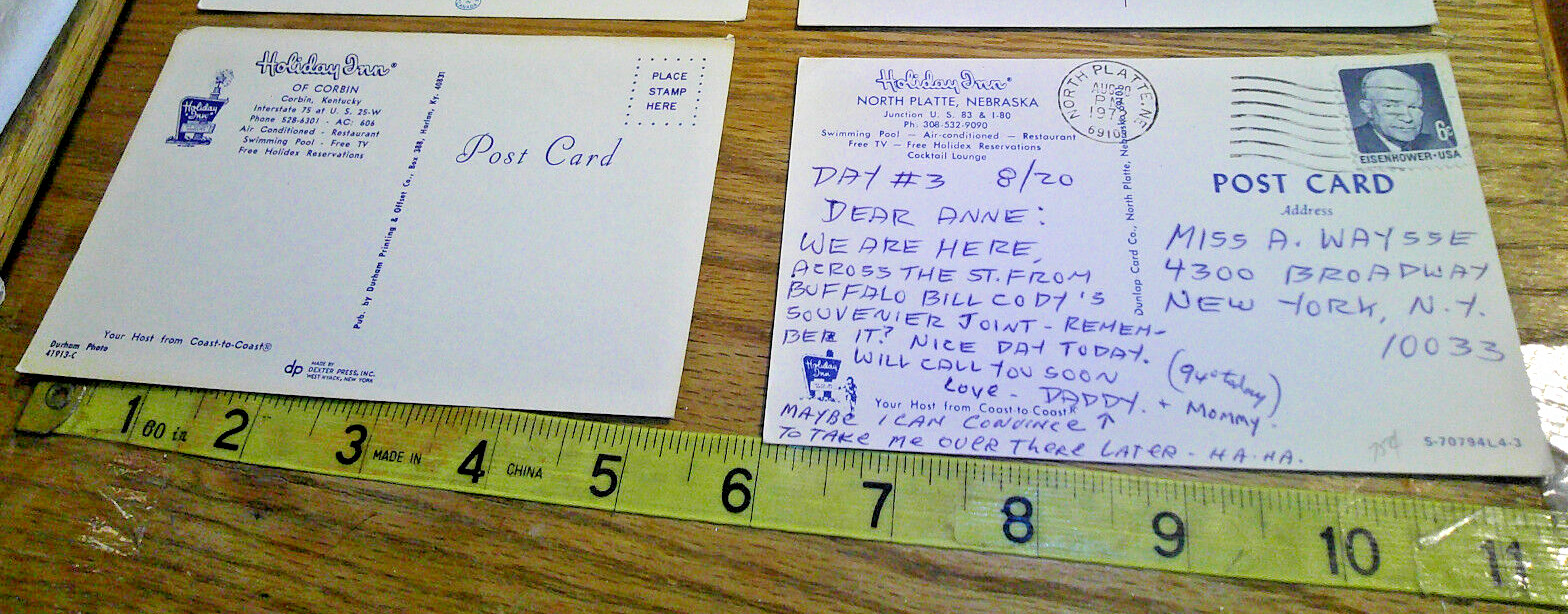 Holiday Inn®
OF CORBIN
Corbin, Kentucky
Interstate 75 at U. S. 25-W
Phone 528-6301 - AC: 606
Air Conditioned - Restaurant
Swimming Pool - Free TV
Free Holidex Reservations
Holiday Inn
PLACE
STAMP
HERE
Post Card
Pub. by Durham Printing & Offset Co., Box 388, Harlan, Ky. 40831
Your Host from Coast-to-Coast®
Durham Photo
41913-C
dp
MADE BY
DEXTER PRESS, INC.
WEST NYACK, NEW YORK
Holiday Inn®
NORTH PLATTE, NEBRASKA
Junction U. S. 83 & I-80
Ph: 308-532-9090
Swimming Pool — Air-conditioned — Restaurant
Free TV — Free Holidex Reservations
Cocktail Lounge
NORTH PLATTE, NE
AUG
PM
197
6910
6c
EISENHOWER·USA
POST CARD
Address
DAY #3 8/20
DEAR ANNE:
WE ARE HERE,
ACROSS THE ST. FROM
BUFFALO BILL CODY'S
SOUVENIER JOINT - REMEM-
BER IT? NICE DAY TODAY.
(94° today)
WILL CALL YOU SOON
LOVE - DADDY. + MOMMY.
Holiday Inn
Your Host from Coast to Coast®
MAYBE I CAN CONVINCE ↑
TO TAKE ME OVER THERE LATER - HA-HA.
Dunlap Card Co., North Platte, Nebraska 69101
MISS A. WAYSSE
4300 BROADWAY
NEW YORK, N.Y.
10033
S-70794L4-3
1 60 in 2 3 MADE IN 4 CHINA 5 6 7 8 9 10 11